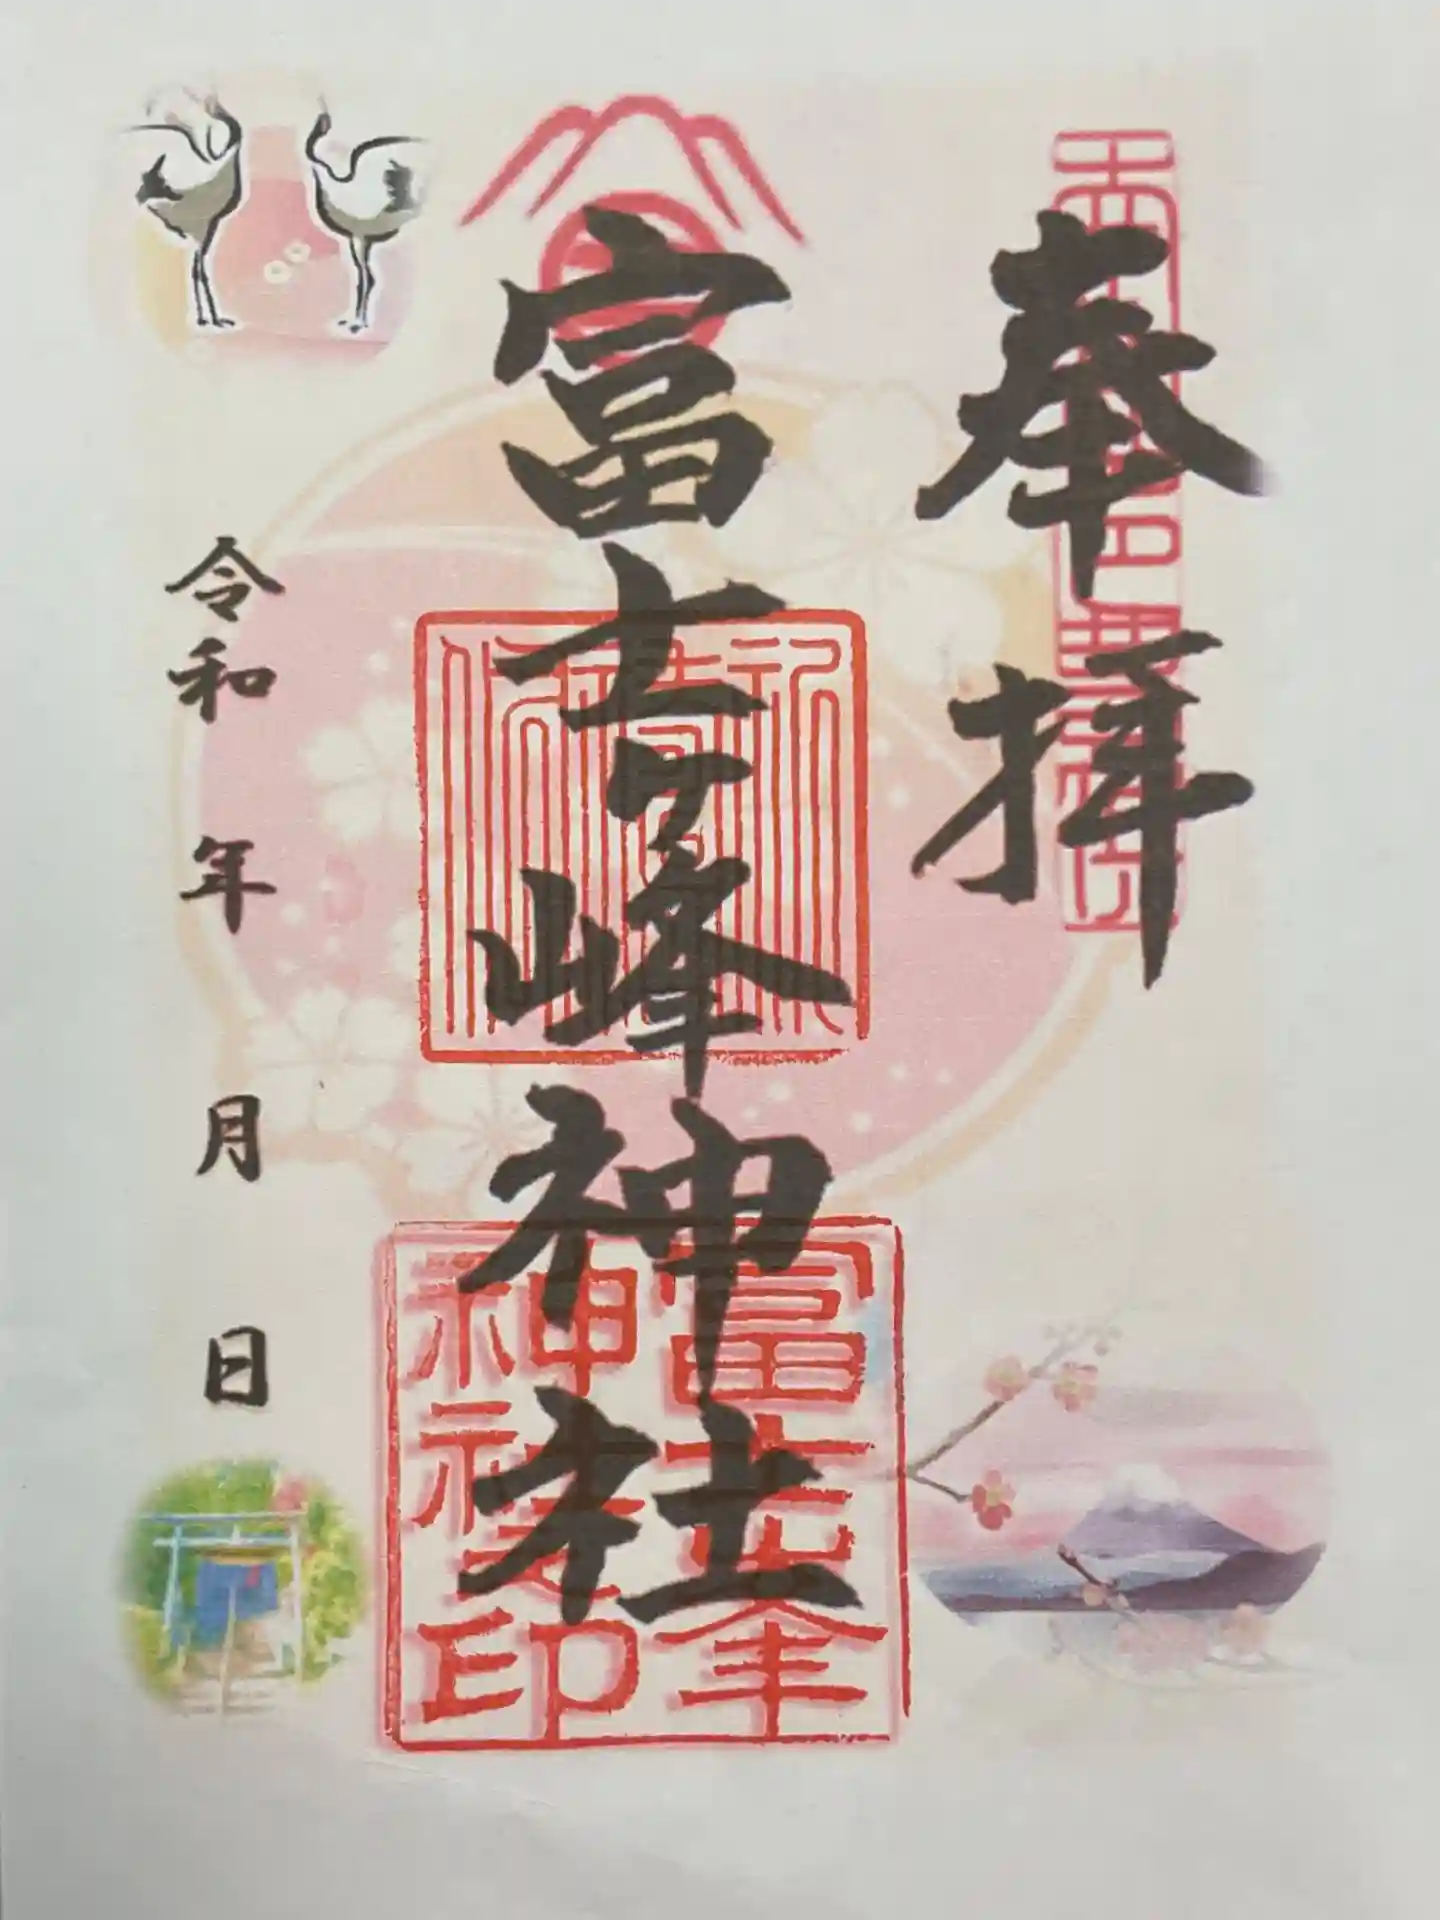 奉拝
富士ヶ峰神社
富士峯
神社印
令和 年 月 日